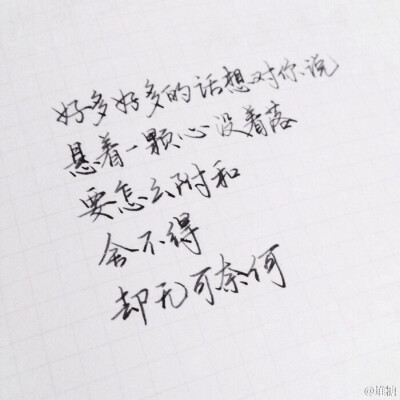 好多好多的话想对你说
悬着一颗心没着落
要怎么附和
舍不得
却无可奈何
@堆糖